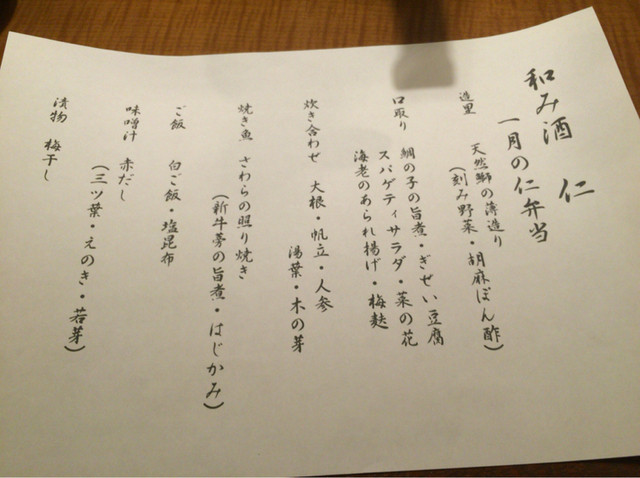 和み酒 仁
一月の仁弁当
造里 天然鰤の薄造り
(刻み野菜・胡麻ぽん酢)
口取り 鯛の子の旨煮・ぎせい豆腐
スパゲティサラダ・菜の花
海老のあられ揚げ・梅麩
炊き合わせ 大根・帆立・人参
湯葉・木の芽
焼き魚 さわらの照り焼き
(新牛蒡の旨煮・はじかみ)
ご飯 白ご飯・塩昆布
味噌汁 赤だし
(三ツ葉・えのき・若芽)
漬物 梅干し